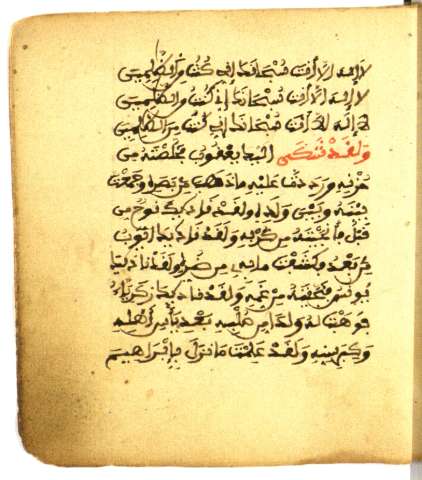 لا إله إلا أنت سبحانك إني كنت من الظالمين
لا إله إلا أنت سبحانك إني كنت من الظالمين
لا إله إلا أنت سبحانك إني كنت من الظالمين
ولقد شكى إليك يعقوب فخلصته من
حزنه ورددت عليه ما ذهب من بصره وجمعت
بينه وبين ولده ولقد ناديك نوح من
قبل فأنجيته من كربه ولقد ناديك أيوب
من بعد فكشفت ما به من ضره ولقد ناديك
يونس فنجيته من غمه ولقد ناديك زكرياء
فوهبت له ولدا من صلبه بعد يأس أهله
وكبر سنه ولقد علمت ما نزل بإبراهيم